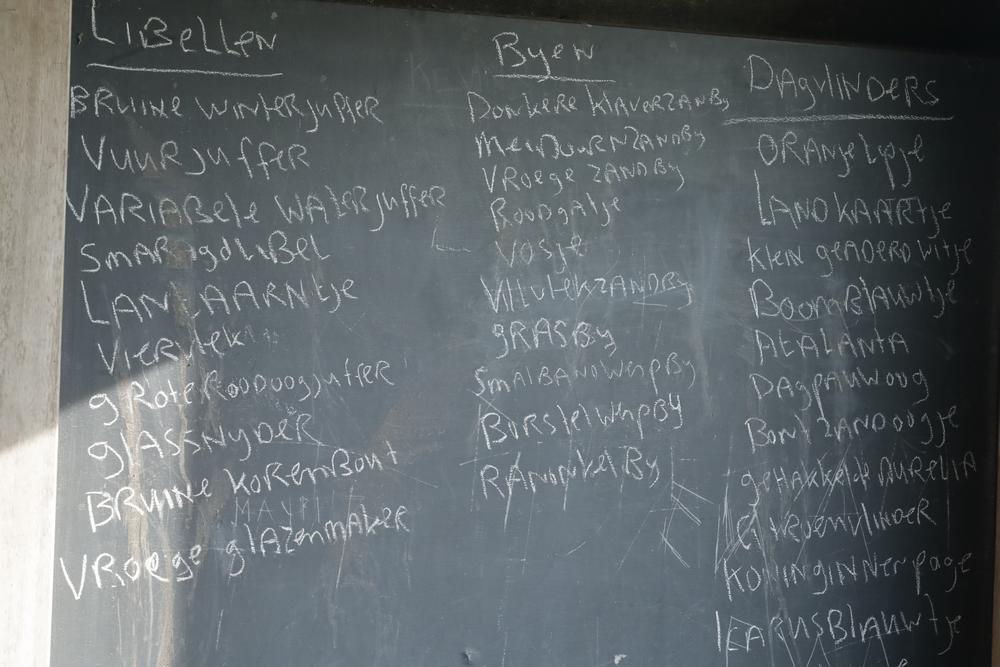 LIBELLEN
BRUINE WINTERJUFFER
VUURJUFFER
VARIABELE WATERJUFFER
SMARAGDLIBEL
LANTAARNTJE
VIERVLEK
GROTE ROODOOGJUFFER
GLASSNYDER
BRUINE KORENBOUT
VROEGE GLAZENMAKER
BYEN
DONKERE KLAVERZANDBY
MEIDOORNZANDBY
VROEGE ZANDBY
ROODGATJE
VOSJE
VILTVLEKZANDBY
GRASBY
SMALBANDWESPBY
BORSTELWESPBY
RANONKELBY
DAGVLINDERS
ORANJETIPJE
LANDKAARTJE
KLEIN GEADERD WITJE
BOOMBLAUWTJE
ATALANTA
DAGPAUWOOG
BONT ZANDOOGJE
GEHAKKELDE AURELIA
CITROENVLINDER
KONINGINNENPAGE
ICARUSBLAUWTJE